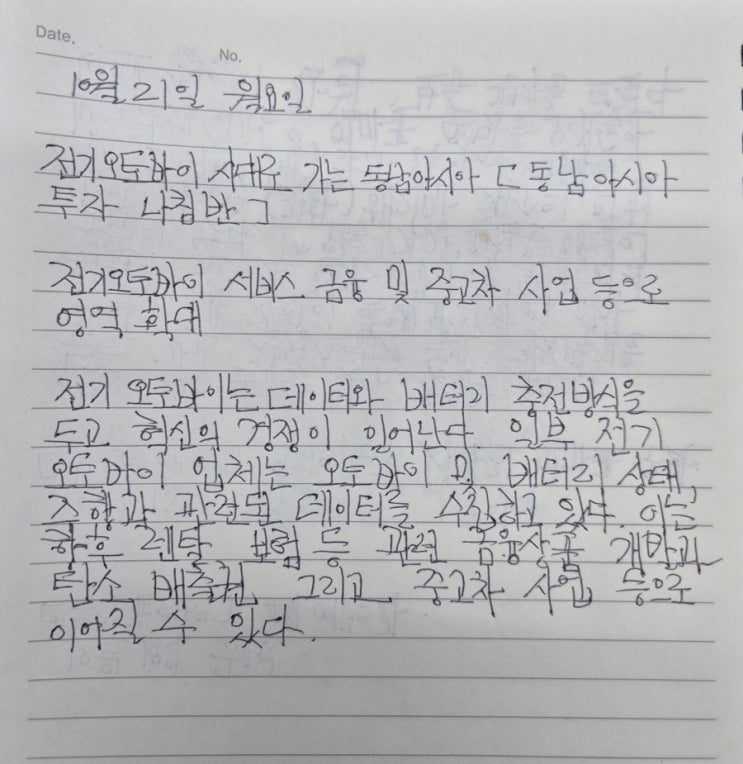 Date.
No.
10월 21일 월요일
전기오토바이 시대로 가는 동남아시아 [동남아시아
투자 나침반]
전기오토바이 서비스 금융 및 중고차 사업 등으로
영역 확대
전기 오토바이는 데이터와 배터리 충전방식을
두고 혁신의 경쟁이 일어난다 일부 전기
오토바이 업체는 오토바이 및 배터리 상태,
주행과 관련된 데이터를 수집하고 있다. 이는
향후 렌탈 보험 등 관련 금융상품 개발과
탄소 배출권 그리고 중고차 사업 등으로
이어질 수 있다.